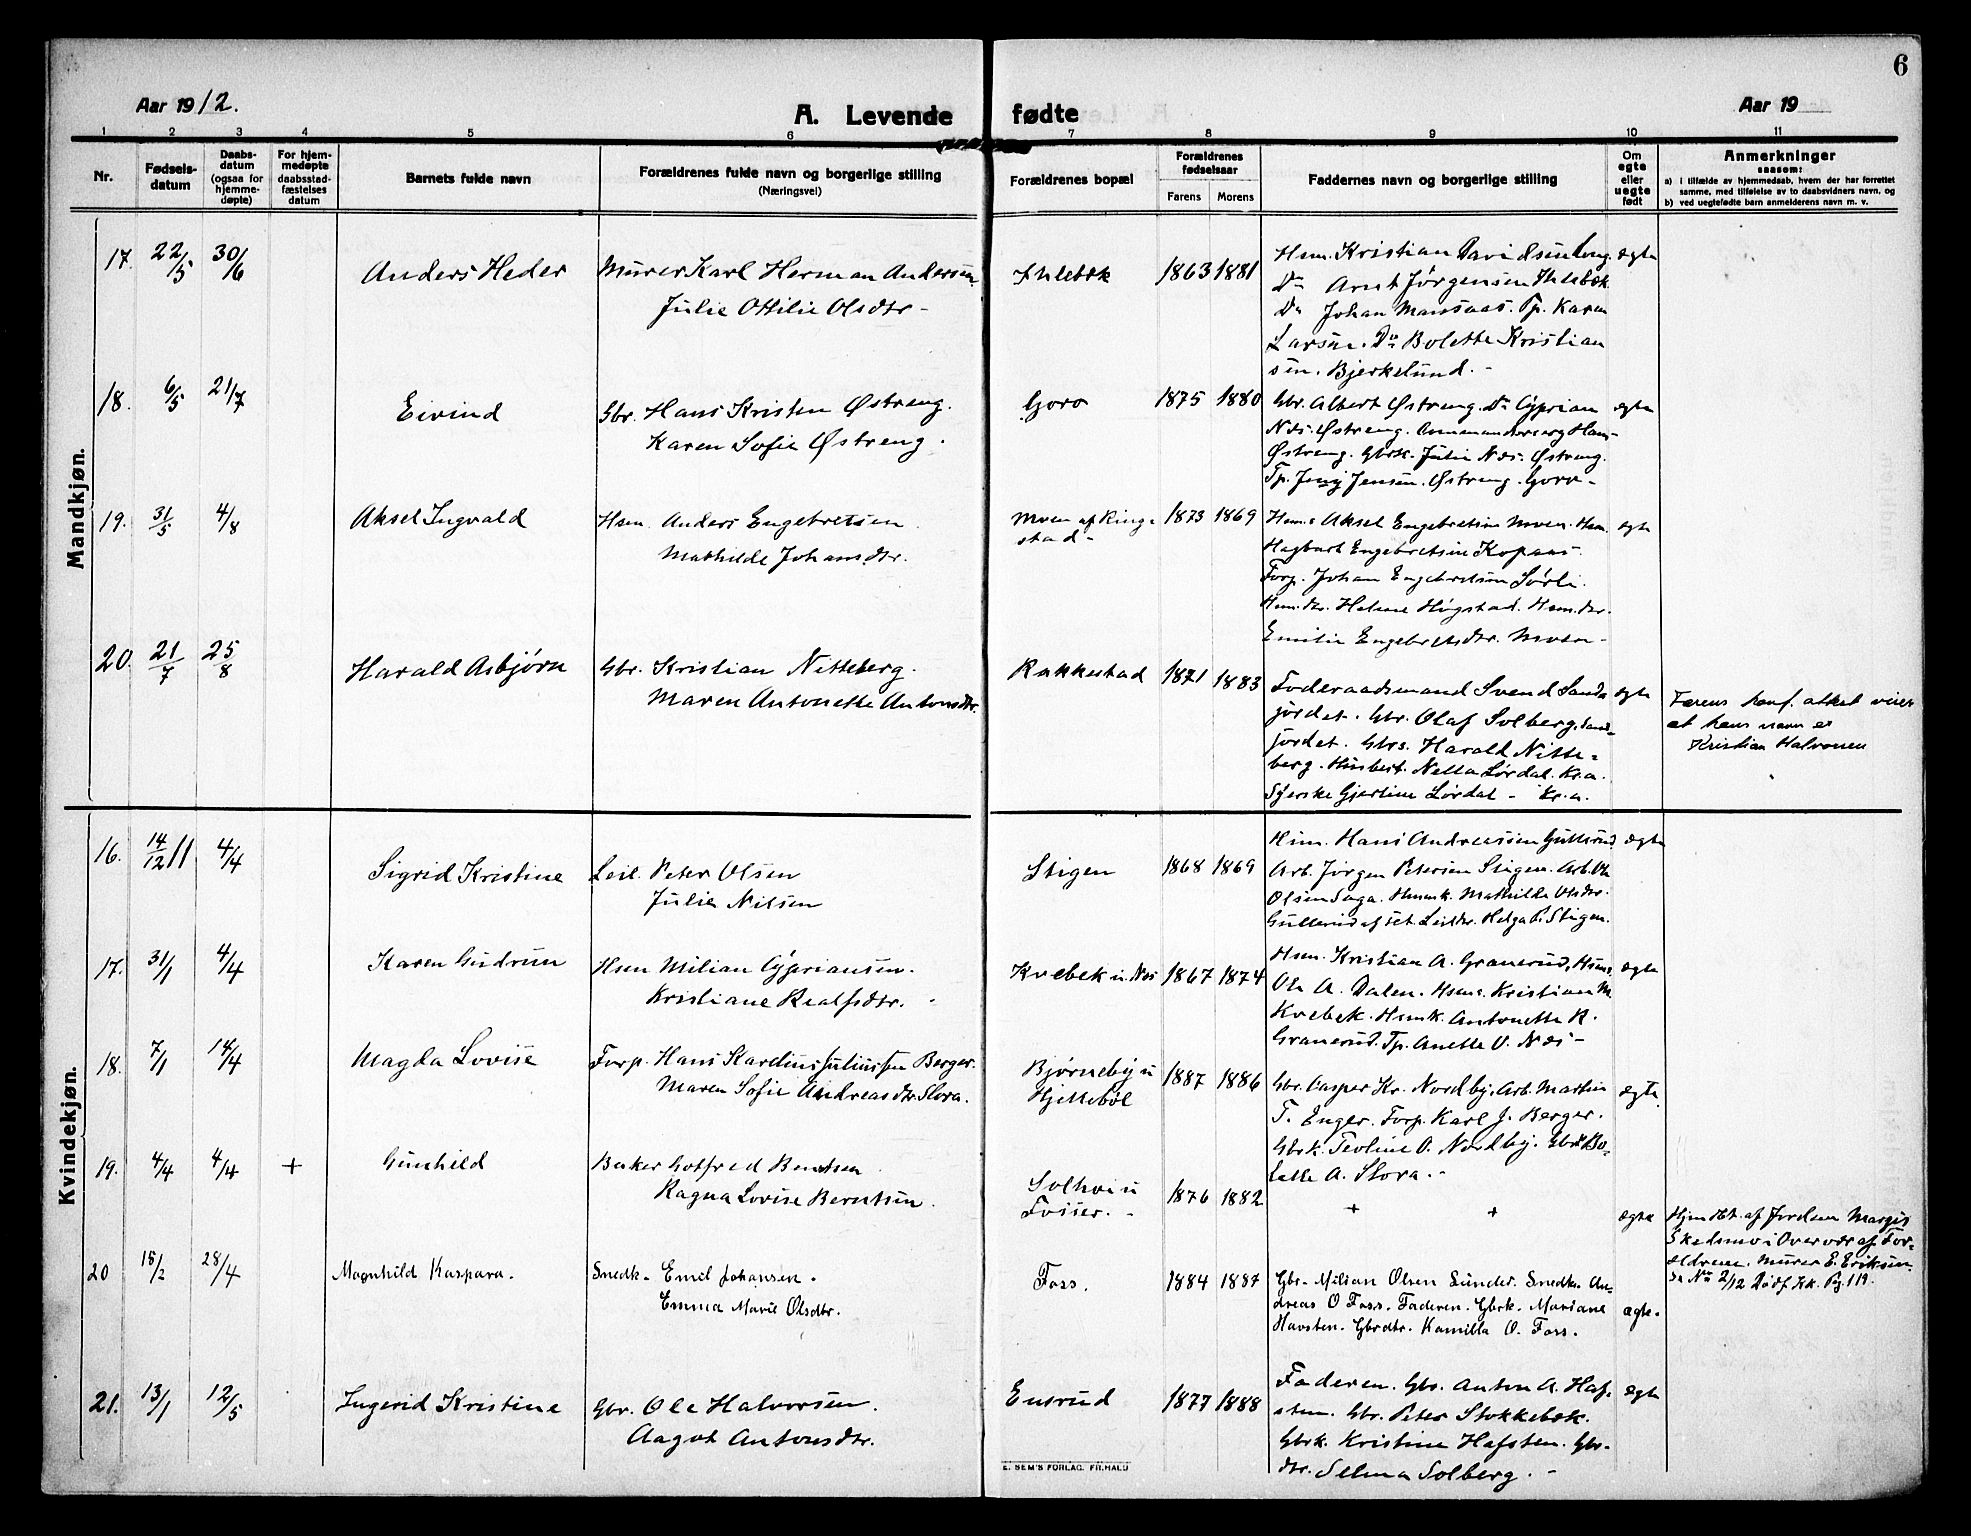 6
Aar 1912.
A. Levende fødte
Aar 19
1 2 3 4 5 6 7 8 9 10 11
Nr.
Fødsels-
datum
Daabs-
datum
(ogsaa for
hjemme-
døpte)
For hjem-
medøpte
daabsstad-
fæstelses
datum
Barnets fulde navn
Forældrenes fulde navn og borgerlige stilling
(Næringsvei)
Forældrenes bopæl
Forældrenes
fødselsaar
Farens
Morens
Faddernes navn og borgerlige stilling
Om
egte
eller
uegte
født
Anmerkninger
saasom:
a) i tilfælde av hjemmedaab, hvem der har forrettet
samme, med tilføielse av to daabsvidners navn, og
b) ved uegtefødte barn anmelderens navn m. v.
Mandkjøn.
17. 22/5 30/6 Anders Heder
Murer Karl Herman Andersen
Julie Ottilie Olsdtr -
Ihlebæk 1863 1881
Hsm. Kristian Davidsen
Do Arnt Jørgensen Ihlebæk
Do Johan Tp. Karen
Larsen. Do Bolette Kristian
sen. Bjerkelund. -
ægte
18. 6/5 21/7 Eivind
Gbr. Hans Kristen Østreng.
Karen Sofie Østreng.
Goro 1875 1880
Gbr. Albert Østreng. Do Cyprian
Næs. Østreng. Hans
Østreng. Gbrk. Julie Næs. Østreng.
Tp. Jenny Jensen. Østreng. Goro -
ægte
19. 31/5 4/8 Aksel Ingvald
Hsm. Anders Engebretsen.
Mathilde Johansdtr.
Moen af Ring-
stad - 1873 1869
Hsm. Aksel Engebretsen Moen. Hsm.
Hagbart Engebretsen Kopaas.
Forp. Johan Engebretsen Sørli.
Hsm.dtr. Helene Høgstad. Hsm.dtr.
Emilie Engebretsdtr. Moen -
ægte
20. 21/7 25/8 Harald Asbjørn
Gbr. Kristian Nitteberg.
Maren Antonette Antonsdtr.
Rakkestad 1871 1883
Foderaadsmand Svend Sand-
jordet. Gbr. Olaf Solberg, Sand-
jordet. Gbrs. Harald Nitte-
berg. Husbest. Nella Lørdal. Kr.a.
Syerske Gjertine Lørdal - Kr.a.
ægte
Farens konf. attest viser
at hans navn er
Kristian Halvorsen
Kvindekjøn.
16. 14/12 11 4/4 Sigrid Kristine
Leil. Peter Olsen
Julie Nilsen
Stigen 1868 1869
Hsm. Hans Andreassen Gullerud
Arb. Jørgen Petersen Stigen. Arb. Ole
Olsen Saga. Hsmk. Mathilde Olsdtr.
Gullerud af Set. Leildtr. Helga P. Stigen.
ægte
17. 31/1 4/4 Karen Gudrun
Hsm Milian Cypriansen.
Kristiane Realfsdtr.
Kvebek u. Næs 1867 1874
Hsm. Kristian A. Granerud, Hsms.
Ole A. Dalen. Hsms. Kristian M
Kvebek. Hsmk. Antonette R.
Granerud. Tp. Anette O. Næs -
ægte
18. 7/1 14/4 Magda Lovise
Forp. Hans Kardius Juliussen Berger.
Maren Sofie Andreasdtr Slora.
Bjørneby u
Hjellebøl 1887 1886
Gbr. Casper Kr. Nordby, Arb. Martin
T. Enger. Forp. Karl J. Berger.
Gbrk. Teoline O. Nordby. Gbrk Bo-
lette A. Slora. -
ægte
19. 4/4 4/4 + Gunhild
Baker Gotfred Berntsen
Ragna Lovise Berntsen.
Solhei u
Fosser. - 1876 1882
+ +
ægte
Hjmdbt. af Jordm Margit
Skedsmo i Overvær af For-
ældrene. Murer E. Eriksen.
Se No 2/12 Dødf. Kk. Pg. 119.
20 15/2 28/4 Magnhild Kaspara.
Snedk. Emil Johansen.
Emma Marie Olsdtr.
Foss. 1884 1887
Gbr. Milian Olsen Sunder. Snedk. An-
dreas O Foss. Faderen. Gbrk. Mariane
Havsten. Gbrdtr. Kamilla O. Foss.
ægte.
21. 13/1 12/5 Ingerid Kristine
Gbr. Ole Halvorsen.
Aagot Antonsdtr.
Ensrud 1877 1888
Faderen. Gbs. Anton A. Haf-
sten. Gbr. Peter Stokkebæk.
Gbrk. Kristine Hafsten. Gbr-
dtr. Selma Solberg. -
ægte
E. SEM'S FORLAG. FR.HALD